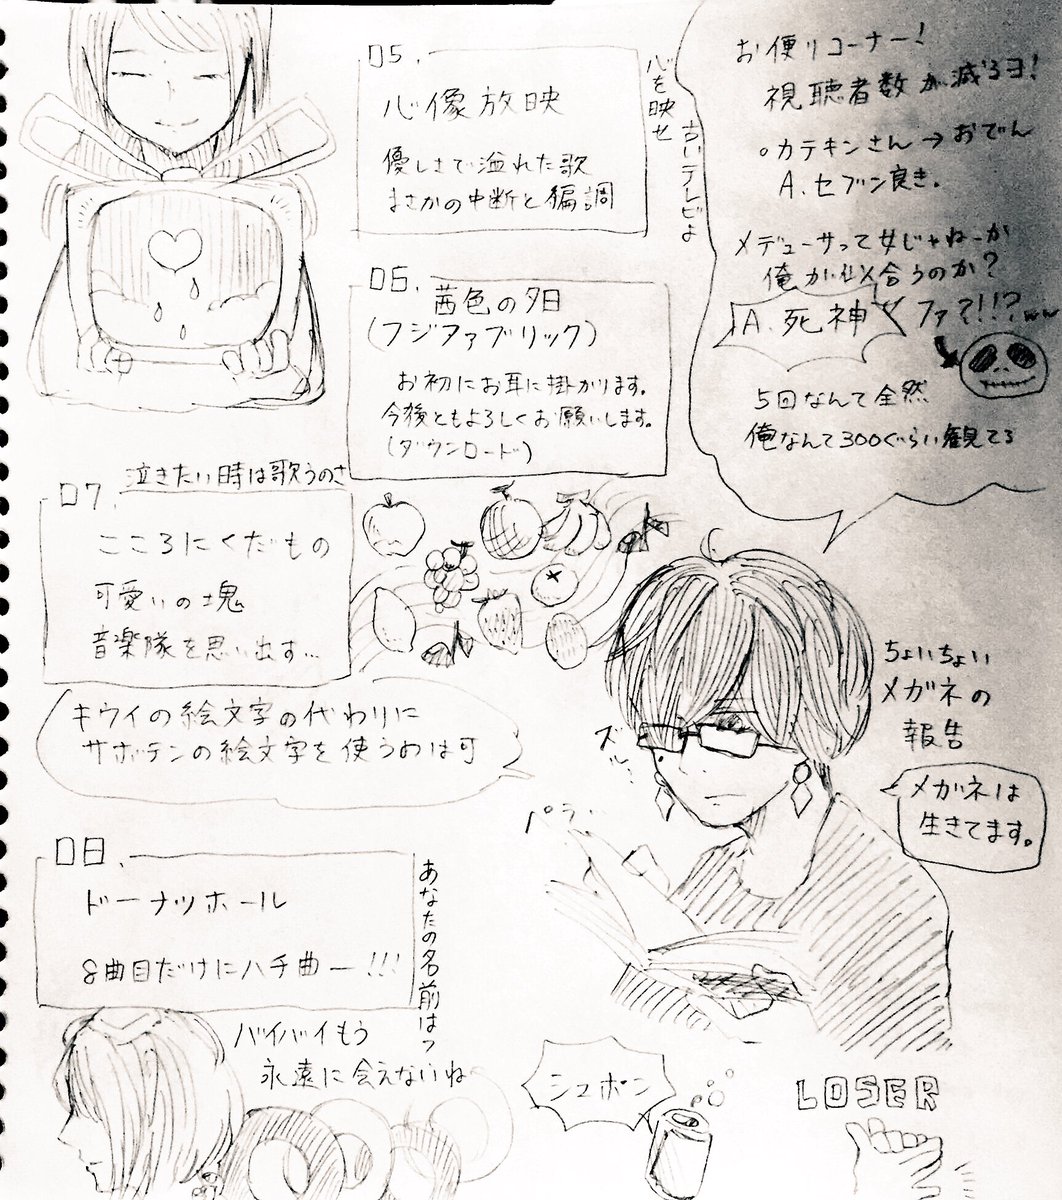 05.
心像放映
優しさで溢れた歌
まさかの中断と編調
心を映せ
古いテレビよ
06.
茜色の夕日
(フジファブリック)
お初にお耳に掛かります。
今後ともよろしくお願いします。
(ダウンロード)
07.
泣きたい時は歌うのさ
こころにくだもの
可愛いの塊
音楽隊を思い出す…
キウイの絵文字の代わりに
サボテンの絵文字を使うのは可
08.
ドーナツホール
8曲目だけにハチ曲ー!!!
あなたの名前は?
バイバイもう
永遠に会えないね
お便りコーナー!
視聴者数が減るヨ!
○カテキンさん→おでん
A.セブン良き.
メデューサって女じゃねーか
俺が似合うのか?
A.死神
ファ?!!?ww
5回なんて全然
俺なんて300ぐらい観てる
ちょいちょい
メガネの
報告
メガネは
生きてます。
ズル…
パラ…
シュポン
LOSER